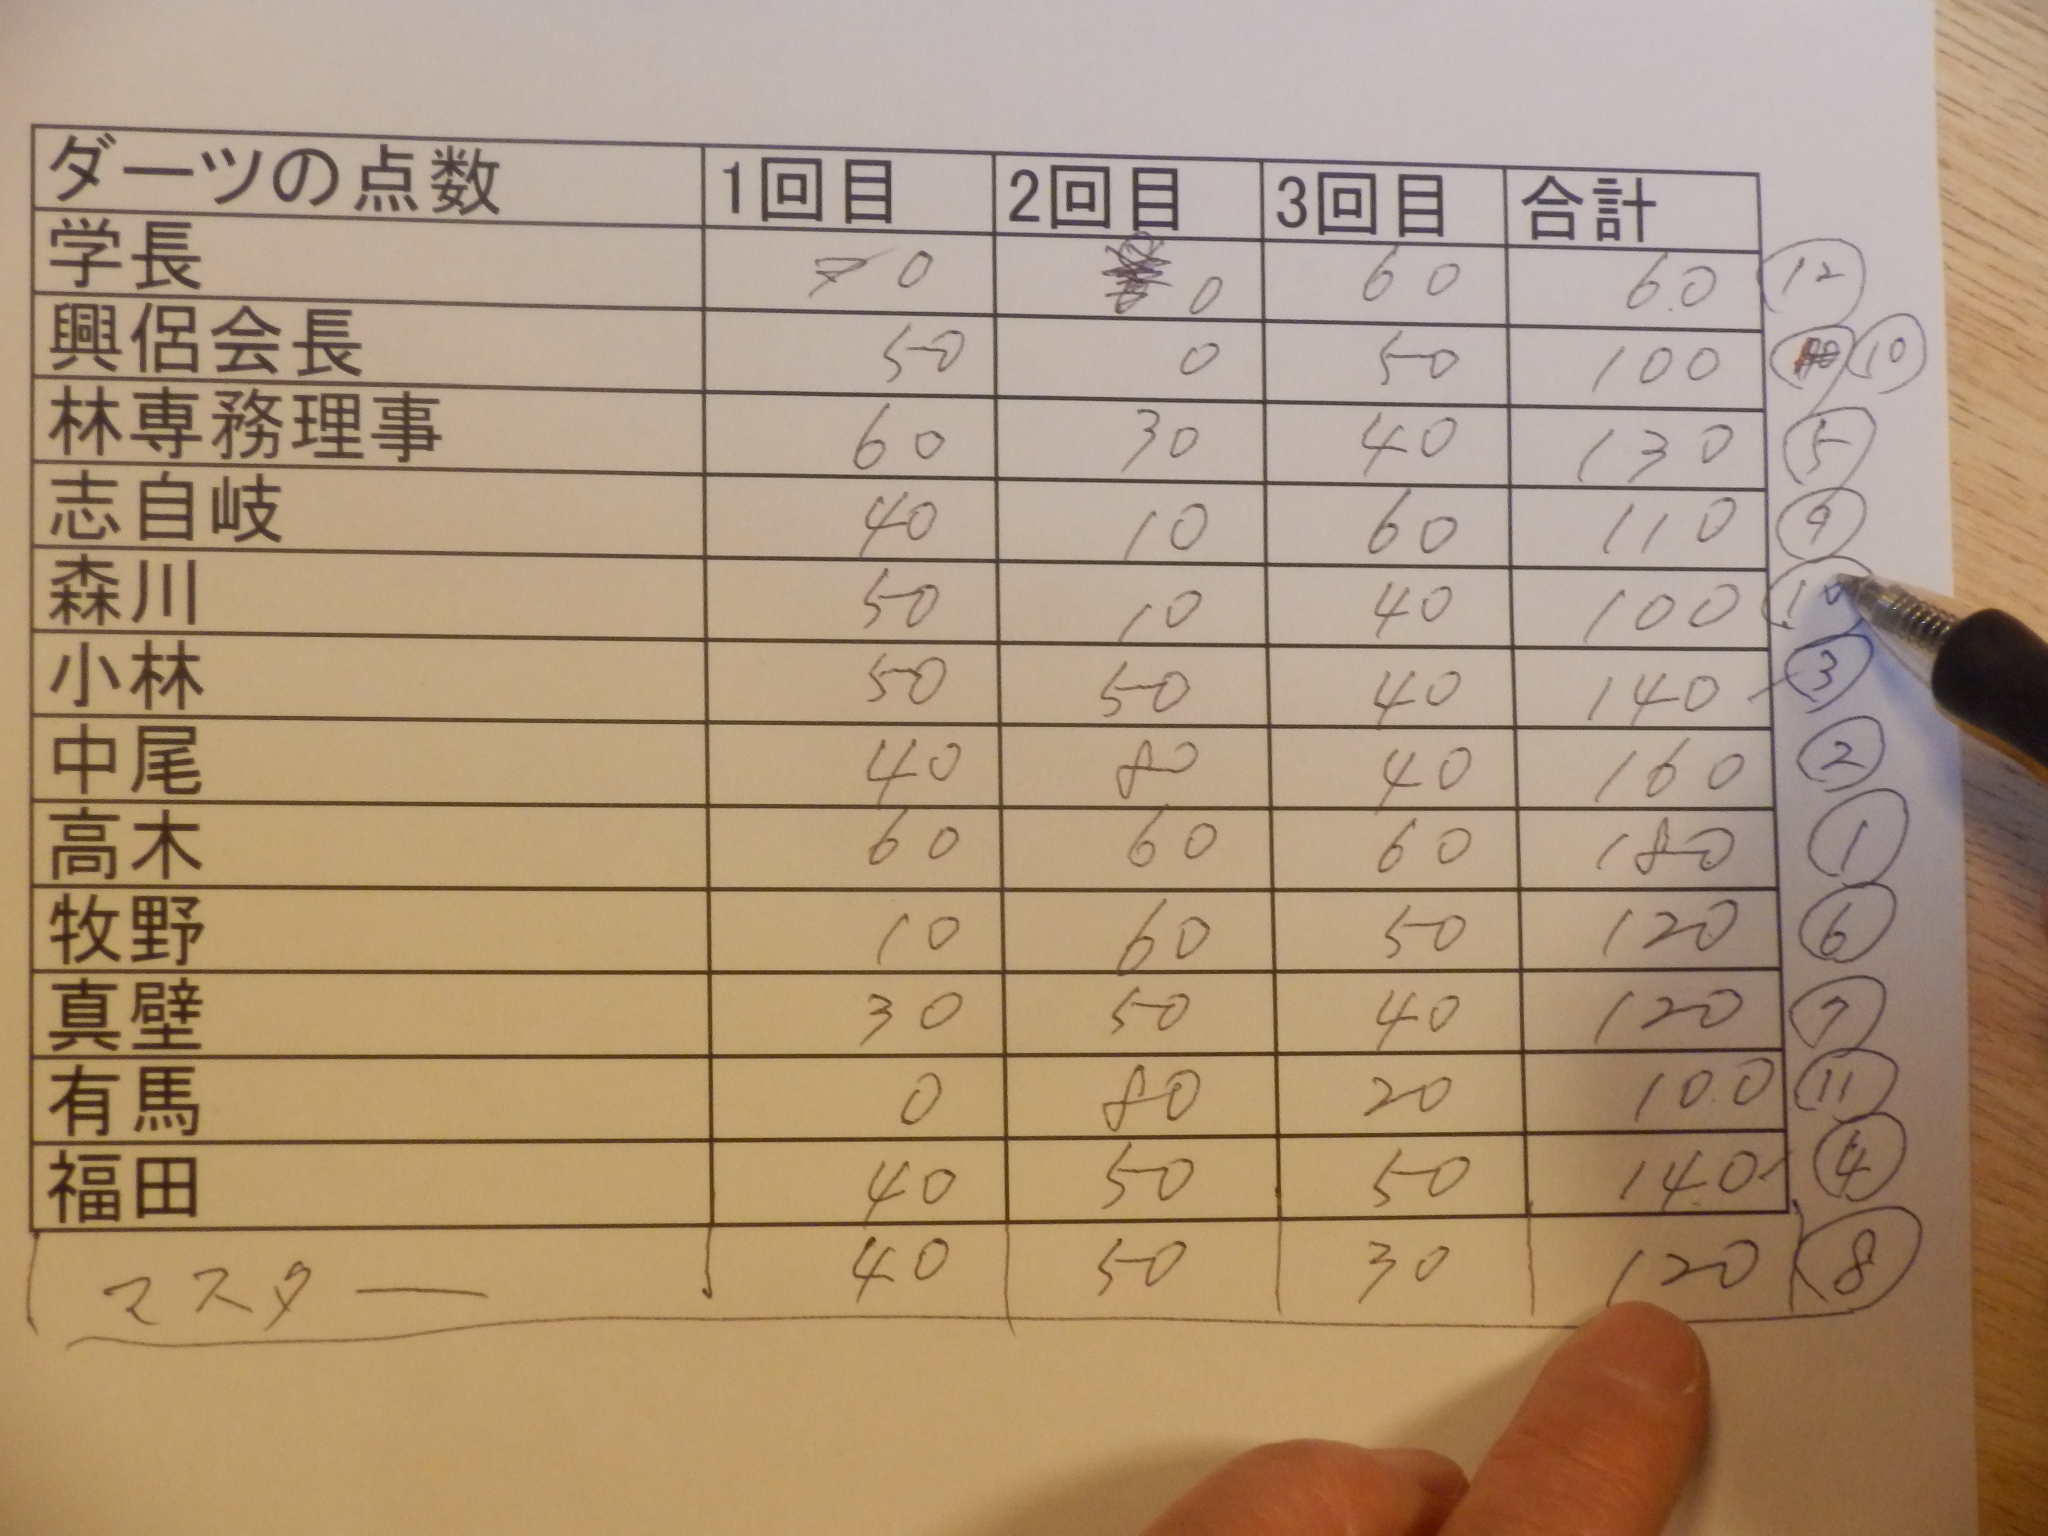 ダーツの点数 1回目 2回目 3回目 合計
学長 0 0 60 60 12
興侶会長 50 0 50 100 10
林専務理事 60 30 40 130 5
志自岐 40 10 60 110 9
森川 50 10 40 100 10
小林 50 50 40 140 3
中尾 40 80 40 160 2
高木 60 60 60 180 1
牧野 10 60 50 120 6
真壁 30 50 40 120 7
有馬 0 80 20 100 11
福田 40 50 50 140 4
マスター 40 50 30 120 8